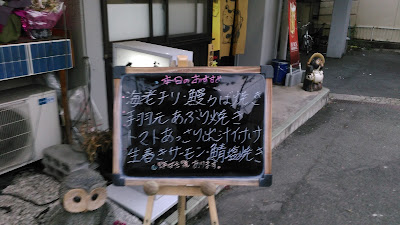 本日のおすすめ
・海老チリ・鰻かば焼き
・手羽元あぶり焼き
・トマトあっさり出汁付け
・生春きサーモン・鯖塩焼き
あります。